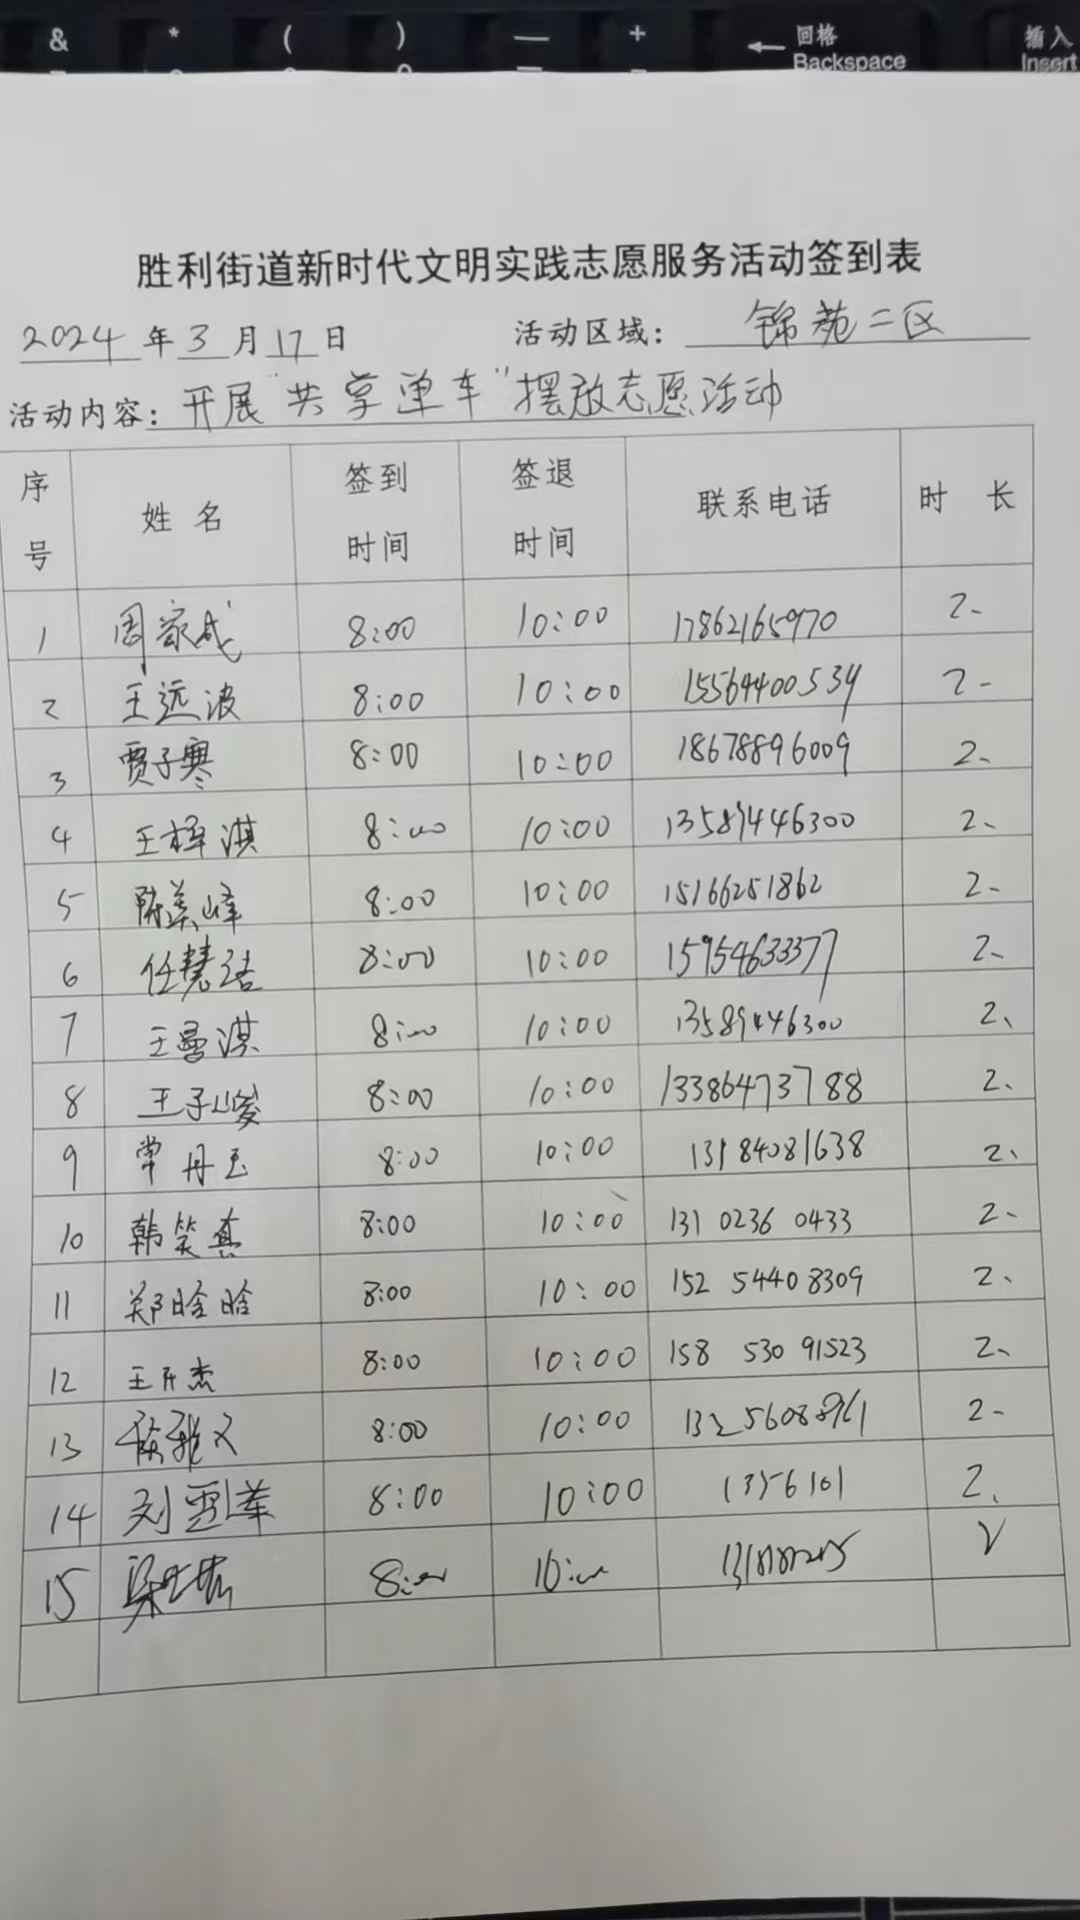 & * ( ) — + ← 回格 插入
Backspace Insert
胜利街道新时代文明实践志愿服务活动签到表
2024年3月17日 活动区域：锦苑二区
活动内容：开展“共享单车”摆放志愿活动
序号 姓名 签到时间 签退时间 联系电话 时长
1 周家成 8:00 10:00 17862165970 2、
2 王远波 8:00 10:00 15564400534 2、
3 贾子寒 8:00 10:00 18678896009 2、
4 王梓淇 8:00 10:00 13589446300 2、
5 陈美峰 8:00 10:00 15166251862 2、
6 任慧洁 8:00 10:00 15954633377 2、
7 王曼淇 8:00 10:00 13589446300 2、
8 王子峻 8:00 10:00 13386473788 2、
9 常丹玉 8:00 10:00 13184081638 2、
10 韩笑真 8:00 10:00 131 0236 0433 2、
11 郑晗晗 8:00 10:00 152 54408309 2、
12 王开杰 8:00 10:00 158 530 91523 2、
13 雅文 8:00 10:00 2、
14 刘 8:00 10:00 1356101 2、
15 梁 8:00 10:00 2